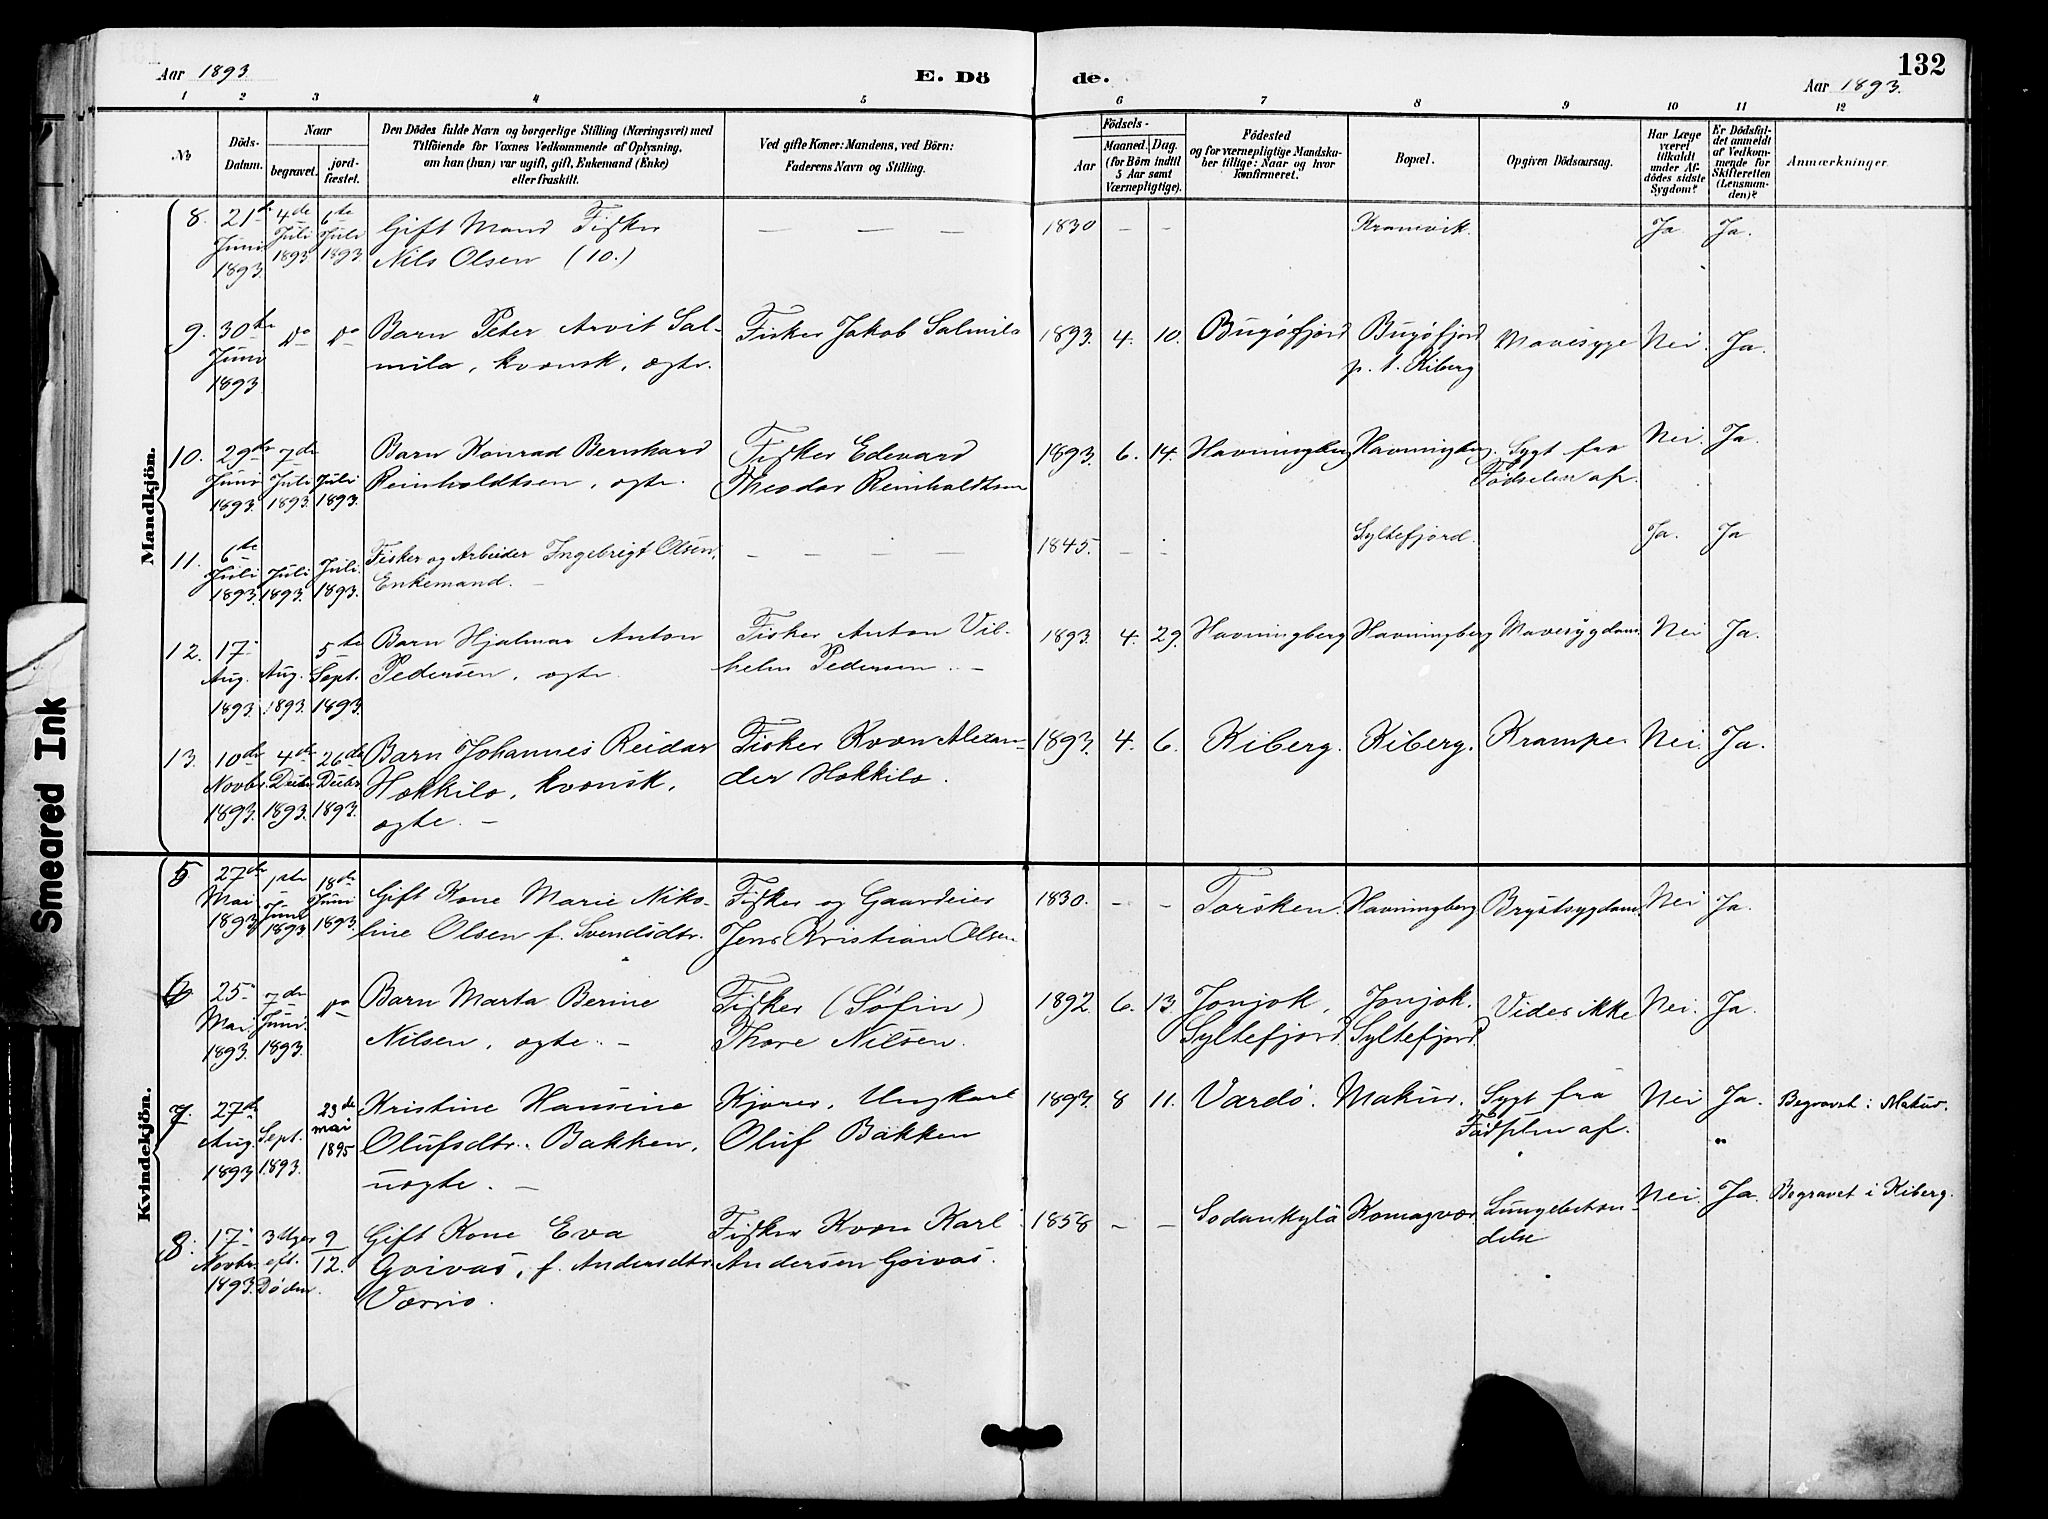 Aar 1893
E. Dö
de.
132
Aar 1893.
1 2 3 4 5 6 7 8 9 10 11 12
№
Döds-
Datum.
Naar
begravet.
jord-
fæstet.
Den Dödes fulde Navn og borgerlige Stilling (Næringsvei) med
Tilföiende for Voxnes Vedkommende af Oplysning,
om han (hun) var ugift, gift, Enkemand (Enke)
eller fraskilt.
Ved gifte Koner: Mandens, ved Börn:
Faderens Navn og Stilling.
Födsels-
Aar
Maaned. Dag.
(for Börn indtil
5 Aar samt
Værnepligtige).
Födested
og for værnepligtige Mandska-
ber tillige: Naar og hvor
konfirmeret.
Bopæl.
Opgiven Dödsaarsag.
Har Læge
været
tilkaldt
under Af-
dödes sidste
Sygdom?
Er Dödsfal-
det anmeldt
af Vedkom-
mende for
Skifteretten
(Lensman-
den)?
Anmærkninger.
Mandkjön.
8. 21de Juni 1893
4de Juli 1893
6te Juli 1893
Gift Mand Fisker
Nils Olsen (10.)
— — —
1830 — —
Kramvik.
Ja. Ja.
9. 30te Juni 1893
Do Do
Barn Peter Arvit Sal-
mila, kvænsk, ægte.
Fisker Jakob Salmila
1893. 4. 10.
Bugöfjord
Bugöfjord
p. t. Kiberg
Mavesyge
Nei. Ja.
10. 29de Juni 1893.
7de Juli 1893.
Juli 1893.
Barn Konrad Bernhard
Reinholdtsen, ægte.
Fisker Edevard
Theodor Reinholdtsen
1893. 6. 14.
Havningberg
Havningberg.
Sygt fra
Fødselen af.
Nei. Ja.
11. 6te Juli 1893.
Juli 1893.
Juli. 1893.
Fisker og Arbeider Ingebrigt Olsen,
Enkemand. —
— — — —
1845. — —
Syltefjord.
Ja. Ja
12. 17. Aug. 1893
Aug. 1893.
5te Sept. 1893.
Barn Hjalmar Anton
Pedersen, ægte.
Fisker Anton Vil-
helm Pedersen. —
1893. 4. 29.
Havningberg
Havningberg
Mavesygdom.
Nei Ja.
13. 10de Novbr. 1893.
4de Decbr. 1893.
26de Decbr. 1893.
Barn Johannes Reidar
Hokkilo, kvænsk,
ægte. —
Fisker Kvæn Alexan-
der Hokkilo.
1893. 4. 6.
Kiberg.
Kiberg.
Krampe
Nei. Ja.
Kvindekjön.
5 27de Mai 1893
1ste Juni 1893
18de Juni 1893.
Gift Kone Marie Niko-
line Olsen f. Svendsdtr.
Fisker og Gaardeier
Jens Kristian Olsen
1830. — —
Torsken.
Havningberg
Brystsygdom.
Nei Ja.
6 25. Mai. 1893.
7de Juni 1893.
Do
Barn Marta Berine
Nilsen, ægte. —
Fisker (Søfin)
Thore Nilsen.
1892 6. 13.
Jonjok,
Syltefjord.
Jonjok.
Syltefjord.
Vides ikke
Nei. Ja.
7. 27de Aug. 1893
Sept. 1893.
23de mai 1895
Kristine Hansine
Olufsdtr. Bakken,
uægte. —
Kjører, Ungkarl
Oluf Bakken
1893. 8 11.
Vardö.
Makur.
Sygt fra
Fødselen af.
Nei Ja.
"
Begravet i Makur.
8. 17. Novbr. 1893.
3 Uger eft. Døden.
9/12.
Gift Kone Eva
Goivas, f. Andersdtr.
Værrio.
Fisker Kvæn Karl
Andersen Goivas.
1858 — —
Sodankylä
Komagvær
Lungebetæn-
delse
Nei. Ja.
Begravet i Kiberg.
Smeared Ink